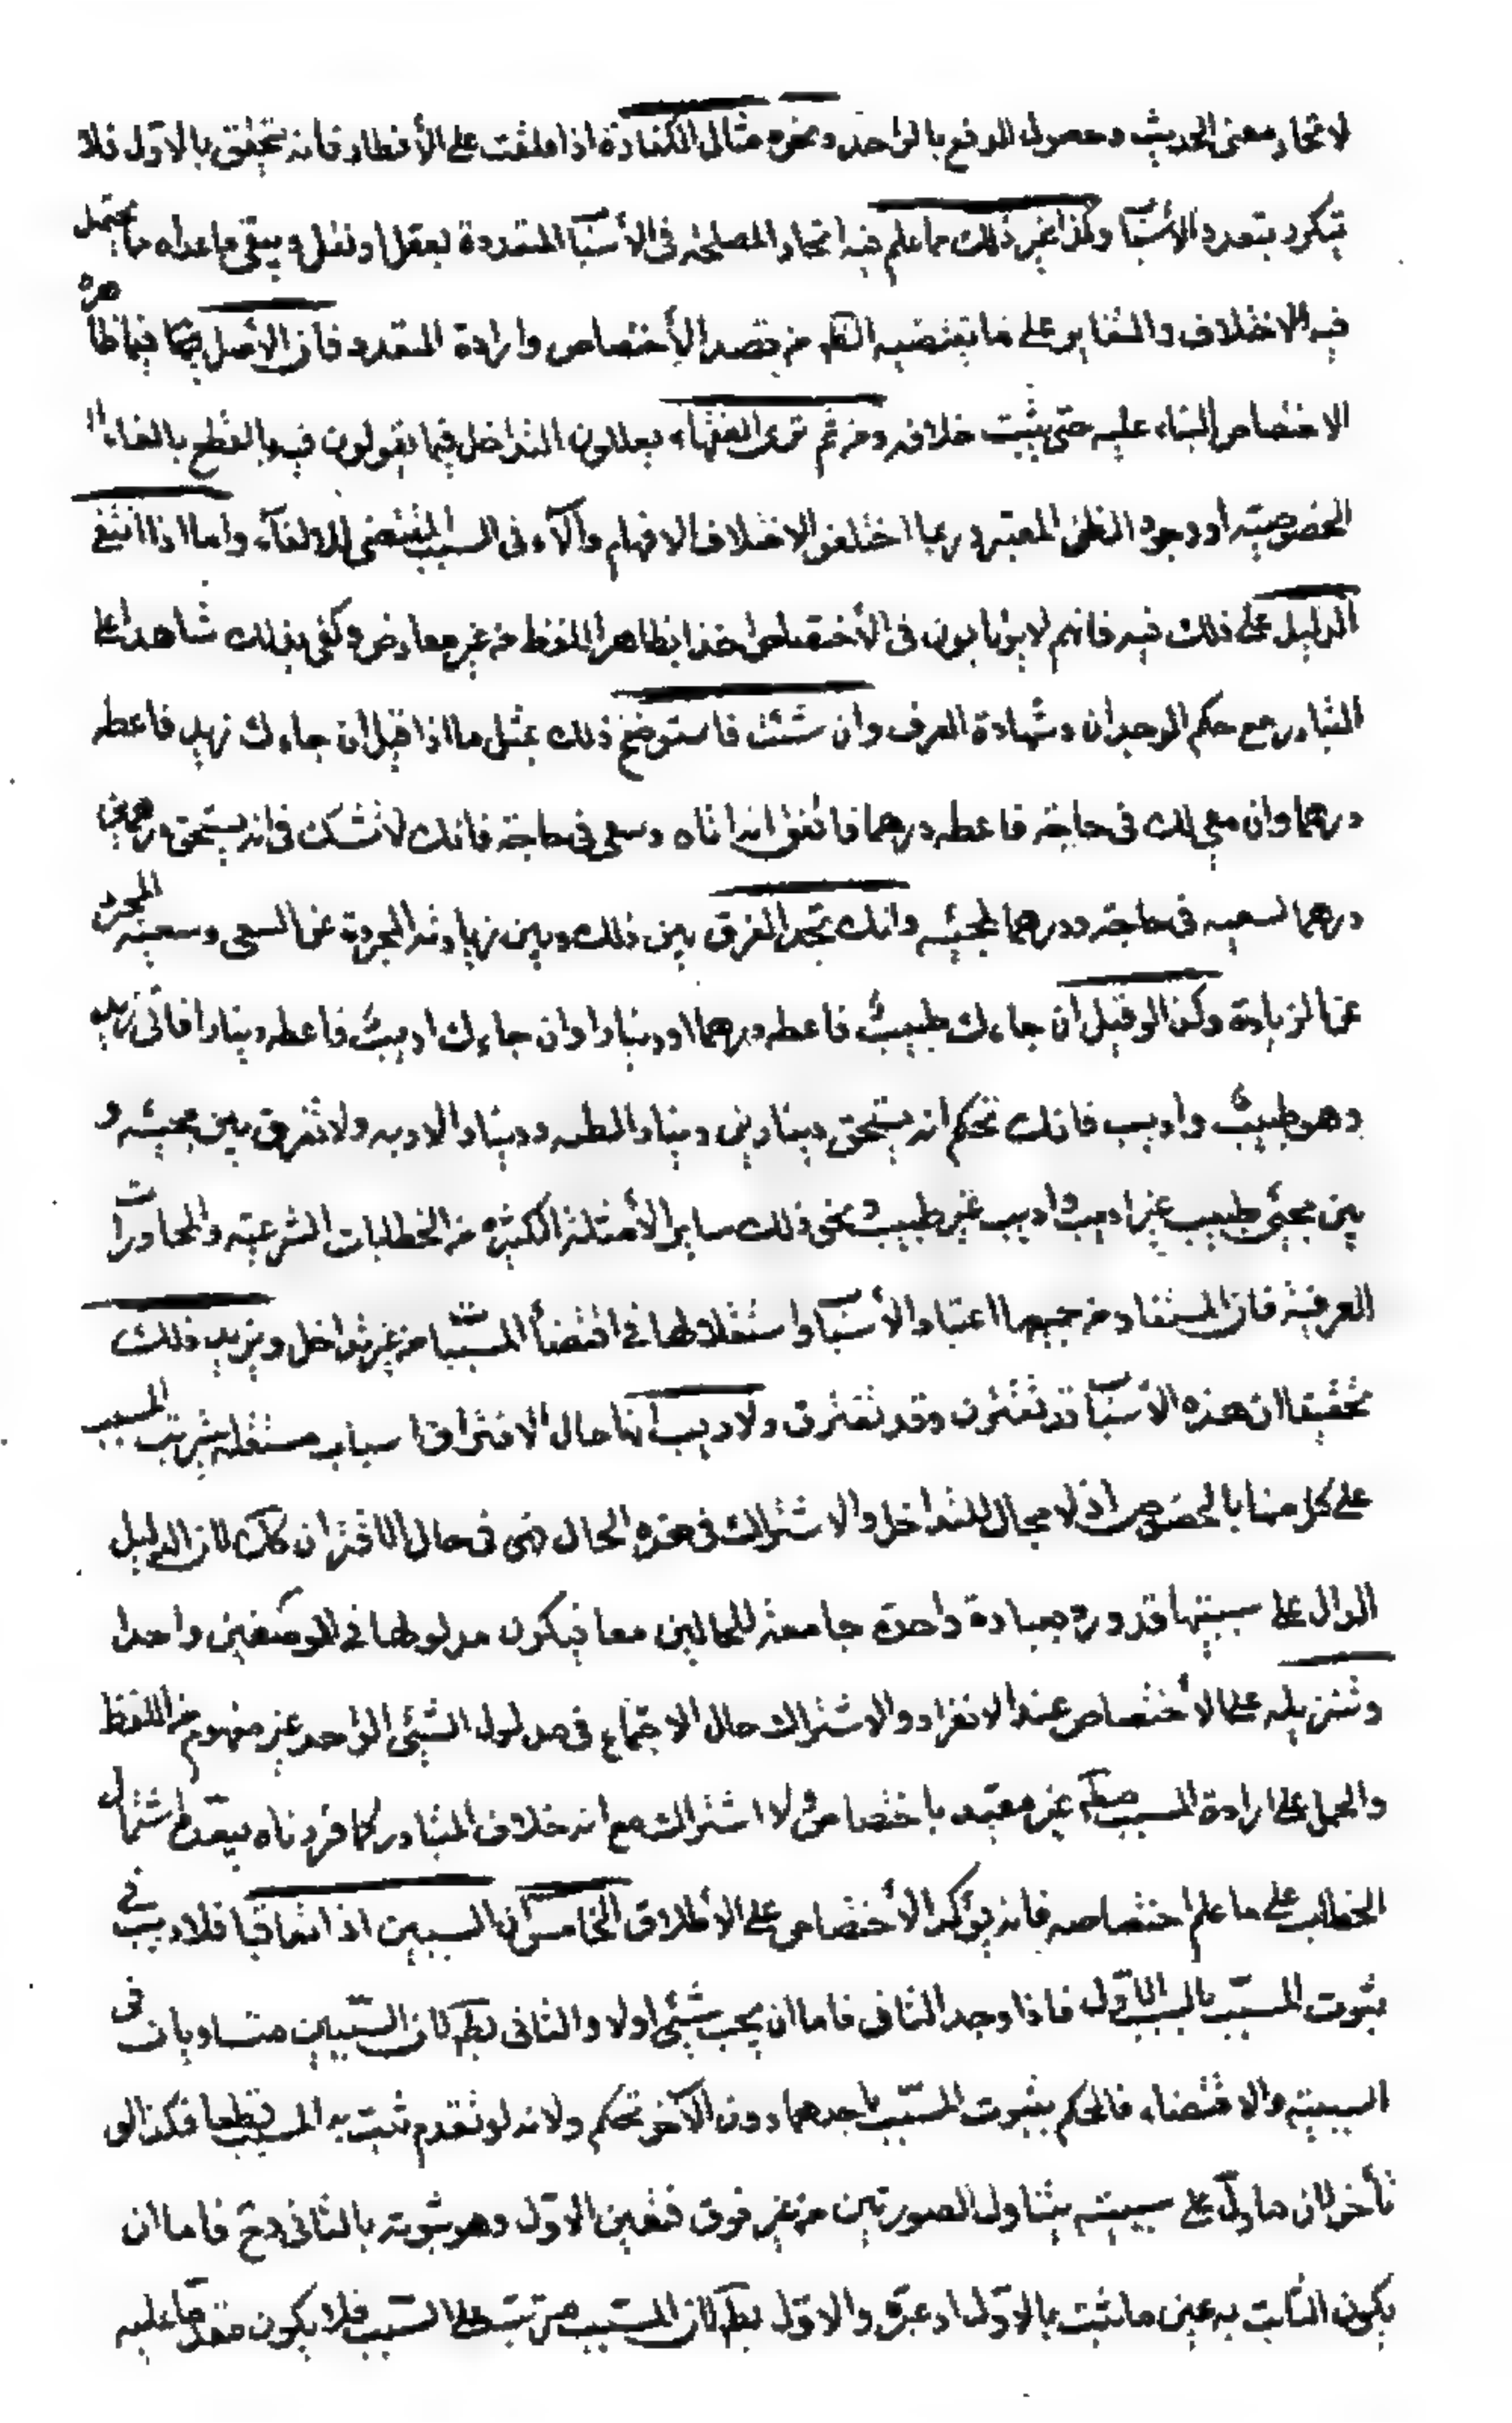 لاتحاد معنى الحديث وحصول الرفع بالواحد ونحوه مثال الكفارة اذا علقت على الأفطار فانه تحقق بالاول فلا
تكرر بتعدد الأسباب وكذا غير ذلك مما علم فيه اتحاد المصلحة فى الأسباب المتعددة بعقل او نقل ويبقى ماعداه مما يحتمل
فيه الاختلاف والتغاير على ما يقتضيه الظ من قصد الأختصاص وارادة التعدد فان الأصل فيما ظاهره
الاختصاص البناء عليه حتى يثبت خلافه ومن ثم ترى الفقهاء يعللون التداخل فيما يقولون فيه بالقطع بالغاء
الخصوصية او وجود الظن المعتبر وربما اختلفوا لاختلاف الافهام والآراء فى السبب المقتضى للالغاء واما اذا انتفى
الدليل على ذلك فيه فانهم لا يرتابون فى الأختصاص اخذا بظاهر اللفظ من غير معارض وكفى بذلك شاهدا على
التبادر مع حكم الوجدان وشهادة العرف وان شئت فاستوضح ذلك بمثل ما اذا قيل ان جاءك زيد فاعطه
درهما وان سعى لك فى حاجة فاعطه درهما فاتفق انه اتاه وسعى فى حاجة فانك لا تشك فى انه يستحق درهمين
درهما لسعيه فى حاجته ودرهما لمجيئه وانك تجد الفرق بين ذلك وبين زيادته المجردة عن السعى وسعيه المجرد
عن الزيادة وكذا لو قيل ان جاءك طبيب فاعطه درهما او دينارا وان جاءك اديب فاعطه دينارا فاتى زيد
وهو طبيب واديب فانك تحكم انه يستحق دينارين دينارا لطبه ودينارا لادبه ولا تفرق بين مجيئه و
بين مجيئ طبيب غير اديب واديب غير طبيب ونحو ذلك ساير الأمثلة الكثيرة من الخطابات الشرعية والمحاورات
العرفية فان المستفاد من جميعها اعتبار الأسباب واستقلالها فى اقتضأ المسببات من غير تداخل ويزيد ذلك
تحقيقا ان هذه الأسباب قد تقترن وقد تفترق ولا ريب انها حال الافتراق اسباب مستقلة يترتب المسبب
على كل منها بالخصوص اذ لا مجال للتداخل والاشتراك فى هذه الحال فهى فى حال الاقتران كك لان الدليل
الدال على سببيتها قد ورد بعبارة واحدة جامعة للحالين معا فيكون مدلولها فى الموضعين واحدا
وتنزيله على الأختصاص عند الانفراد والاشتراك حال الاجتماع فى مدلول الشيئ الواحد غير مفهوم من اللفظ
والحمل على ارادة المسبب مطلقا غير مقيد باختصاص ولا اشتراك مع انه خلاف المتبادر كما قررناه يبعده اشتمال
الخطاب على ما علم اختصاصه فانه يؤكد الأختصاص على الأطلاق الخامس ان السببين اذا تعاقبا فلا ريب فى
ثبوت المسبب بالسبب الاول فاذا وجد الثانى فاما ان يجب شيئ اولا والثانى بط لان السببين متساويان فى
السببية والاقتضاء فالحكم بثبوت المسبب باحدهما دون الآخر تحكم ولانه لو تقدم ثبت به المسبب قطعا فكذا لو
تأخر لان ما دل على سببيته يتناول الصورتين من غير فرق فتعين الاول وهو ثبوته بالثانى وح فاما ان
يكون الثابت به عين ما ثبت بالاول او غيره والاول بط لان المسبب مترتب على السبب فلا يكون متقدما عليه